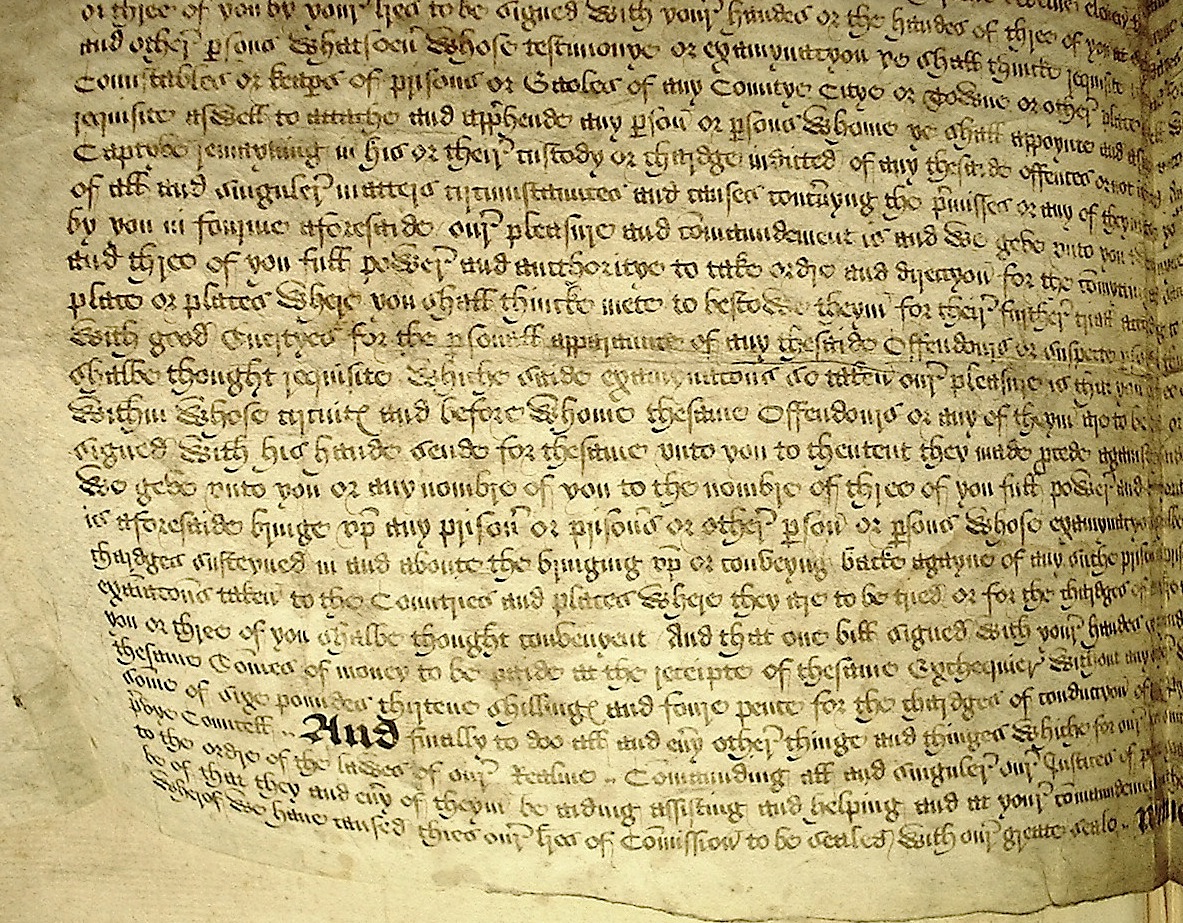 or three of you by your lres to be signed with your handes or the handes of three of you at
and other psons whatsoeu whose testimonye or examynatyon ye shall thincke requisite
Connstables or keaps of prisons or Gaoles of any Countye Citye or Towne or other place
requisite aswell to attache and apphende any pson or psons whome ye shall appoynte and
remayning in his or their custody or chardge indicted of any thesaide offences or not
of all and singuler matters circumstaunces and causes concnyng the pmisses or any of theym
by you in fourme aforesaide our pleasure and comaundement is and we geve vnto you
and three of you full power and aucthoritye to take ordre and direccyon for the
place or places where you shall thincke mete to bestowe theym for their further triall
with good Suertyes for the psonall apparaunce of any thesaide Offendours or suspecte
shalbe thought requisite whiche saide examynacons so taken our pleasure is that you
within whose circuit and before whome thesame Offendours or any of theym are to be
signed with his hande sende for thesame vnto you to thentent they maie pcede against
We geve vnto you or any nombre of you to the nombre of three of you full power and
is aforesaide bringe vp any prison or prisons or other pson or psons whose
chardges susteyned in and aboute the bringing vp or conveyng backe agayne of any suche
examacons taken to the Countries and places where they are to be tried or for the chardges of
you or three of you shalbe thought convenyent And that one bill signed with your handes
thesame Somes of money to be paide at the receipte of thesame Exchequier without any
some of sixe poundes thirtene shilling and foure pence for the chardges of conduccyon of
pvye Counsell .. And finally to doo all and euy other thinge and thinges whiche for our
to the ordre of the lawes of our Realme .. Comaunding all and singuler our Justices of
be of that they and euy of theym be aiding assisting and helping and at your
wherof we have caused thies our lres of Comission to be sealed with our greate seale ..